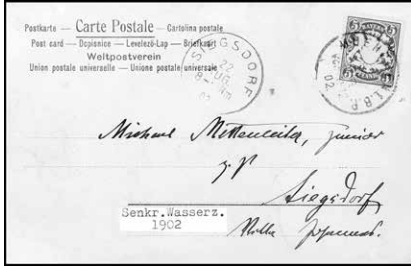 Postkarte — Carte Postale — Cartolina postale
Post card — Dopisnice — Levelező-Lap — Briefkaart
Weltpostverein
Union postale universelle — Unione postale universale
SIEGSDORF
22
AUG
5
PFENNIG
5
02
Michael Mitterleite, junior
z. Z.
Siegsdorf
Villa
Senkr.Wasserz.
1902